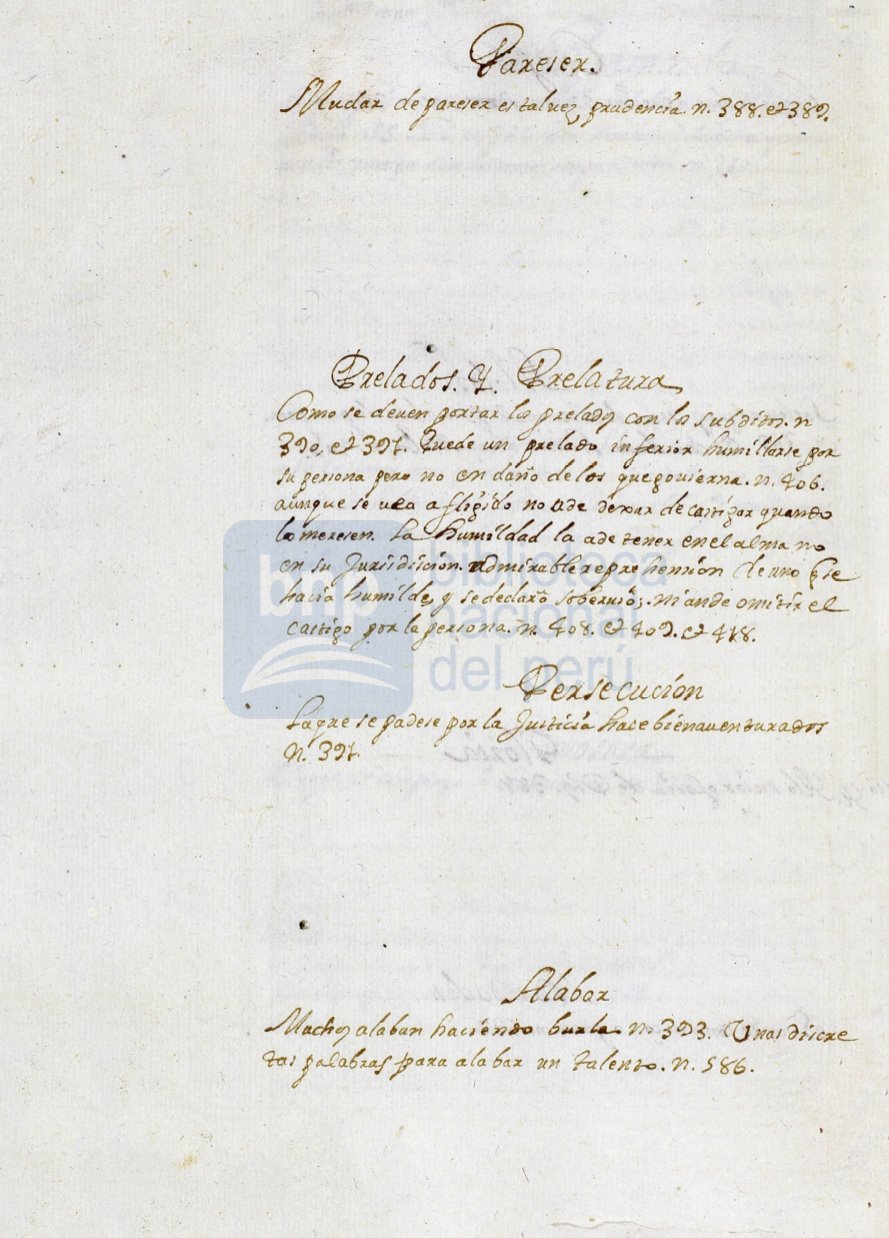 Pareser.
Mudar de pareser es talvez prudencia. n. 388. et 389.
Prelados. Y. Prelatura
Como se deven portar los prelados con los subditos. n
390. et 391. Puede un prelado inferior humillarse por
su persona pero no en daño de los que govierna. n. 406.
aunque se vea afligido no ade dexar de castigar quando
lo meresen. La humildad la ade tener en el alma no
en su Jurisdicion. admirable reprehension de uno q se
hacia humilde, y se declaro sobervio; ni ande omitir el
castigo por la persona. n. 408. et 409. et 418.
Persecución
La que se padese por la Justicia hace bienaventurados
N. 391.
Alabar
Muchos alaban haciendo burla. n. 393. Unas discre
tas palabras para alabar un talento. n. 586.
bnp
biblioteca
nacional
del perú